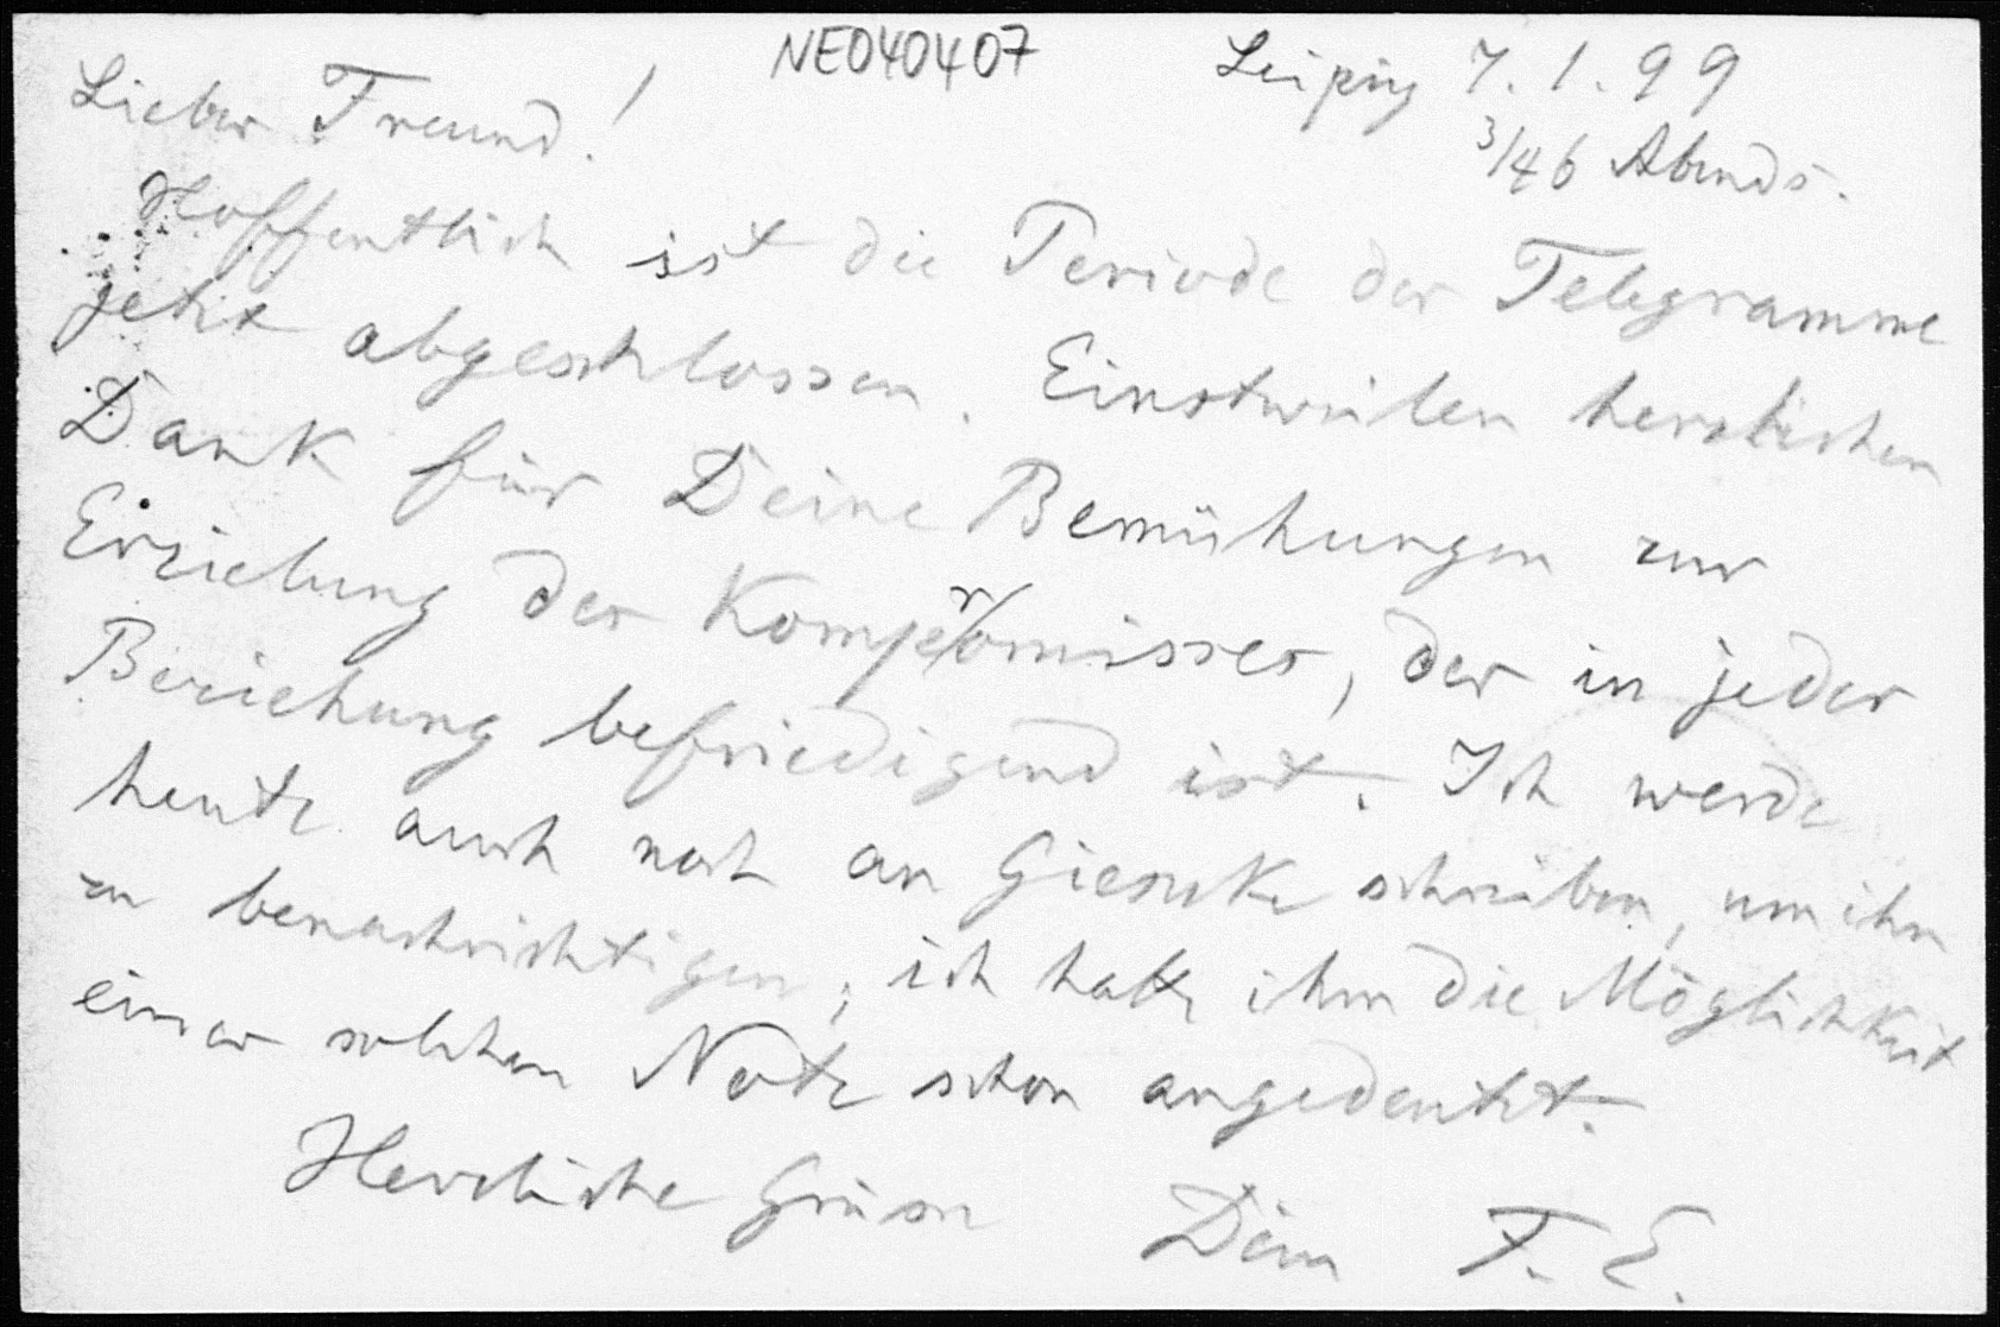 NE040407
Leipzig 7. 1. 99
3/46 Abends.
Lieber Freund!
Hoffentlich ist die Periode der Telegramme
jetzt abgeschlossen. Einstweilen herzlichen
Dank für Deine Bemühungen zur
Erzielung des Kompromisses, der in jeder
Beziehung befriedigend ist. Ich werde
heute auch noch an Giesecke schreiben, um ihn
zu benachrichtigen; ich hatte ihm die Möglichkeit
einer solchen Note schon angedeutet.
Herzliche Grüsse Dein F. E.